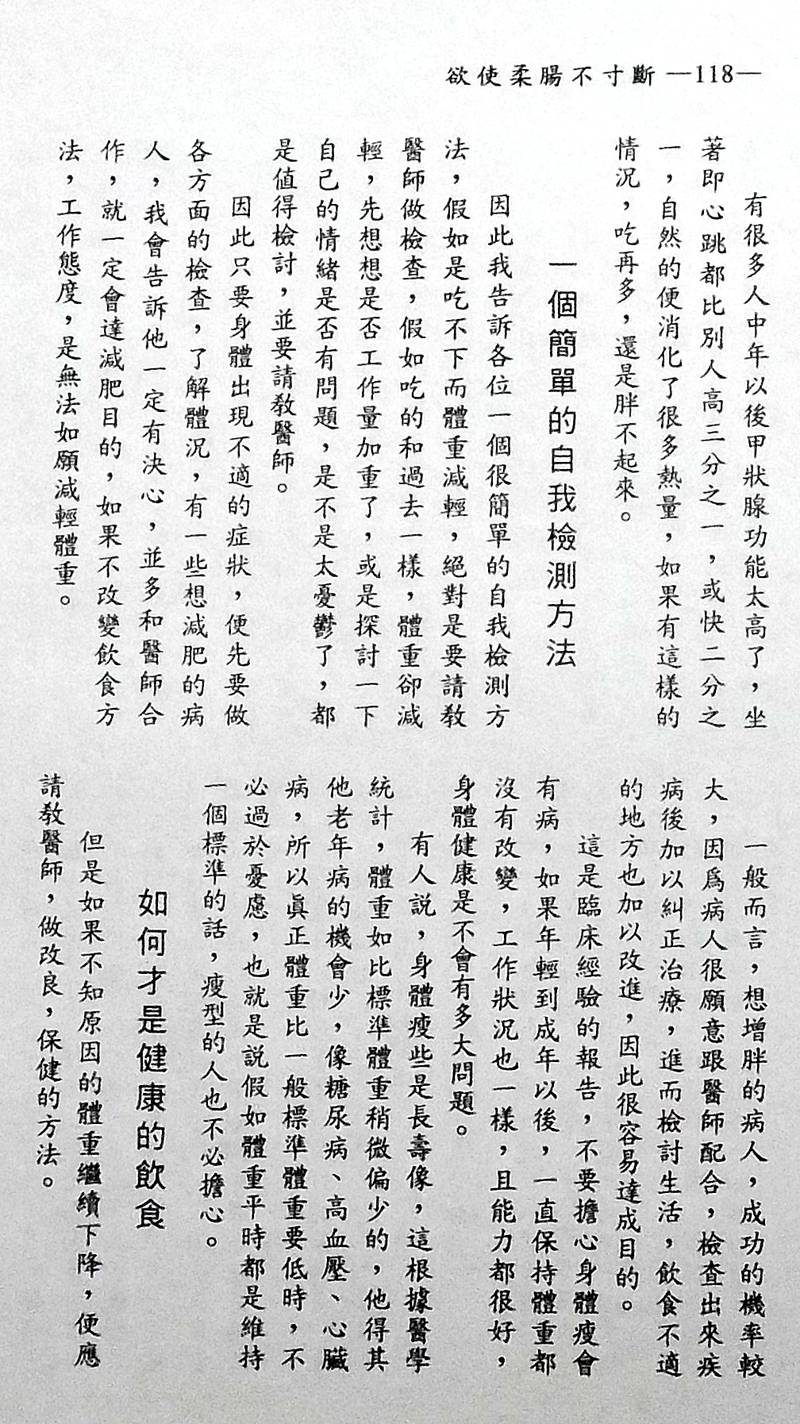 欲使柔腸不寸斷 —118—
有很多人中年以後甲狀腺功能太高了，坐
著即心跳都比別人高三分之一，或快二分之
一，自然的便消化了很多熱量，如果有這樣的
情況，吃再多，還是胖不起來。
一個簡單的自我檢測方法
因此我告訴各位一個很簡單的自我檢測方
法，假如是吃不下而體重減輕，絕對是要請教
醫師做檢查，假如吃的和過去一樣，體重卻減
輕，先想想是否工作量加重了，或是探討一下
自己的情緒是否有問題，是不是太憂鬱了，都
是值得檢討，並要請教醫師。
因此只要身體出現不適的症狀，便先要做
各方面的檢查，了解體況，有一些想減肥的病
人，我會告訴他一定有決心，並多和醫師合
作，就一定會達減肥目的，如果不改變飲食方
法，工作態度，是無法如願減輕體重。
一般而言，想增胖的病人，成功的機率較
大，因爲病人很願意跟醫師配合，檢查出來疾
病後加以糾正治療，進而檢討生活，飲食不適
的地方也加以改進，因此很容易達成目的。
這是臨床經驗的報告，不要擔心身體瘦會
有病，如果年輕到成年以後，一直保持體重都
沒有改變，工作狀況也一樣，且能力都很好，
身體健康是不會有多大問題。
有人說，身體瘦些是長壽像，這根據醫學
統計，體重如比標準體重稍微偏少的，他得其
他老年病的機會少，像糖尿病、高血壓、心臟
病，所以眞正體重比一般標準體重要低時，不
必過於憂慮，也就是說假如體重平時都是維持
一個標準的話，瘦型的人也不必擔心。
如何才是健康的飲食
但是如果不知原因的體重繼續下降，便應
請教醫師，做改良，保健的方法。